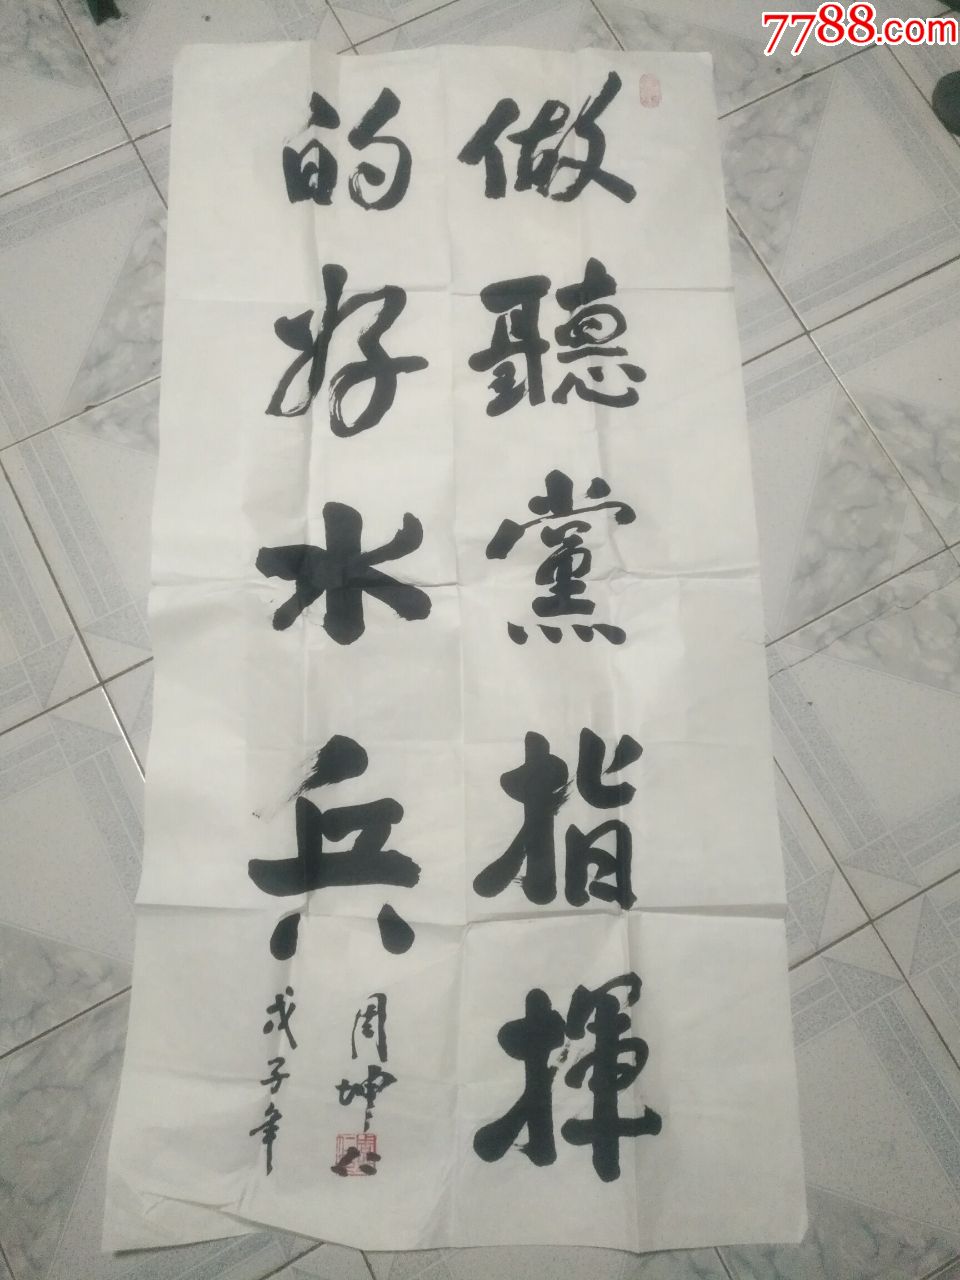 7788.com
做聽黨指揮
的好水兵
周坤仁
戊子年